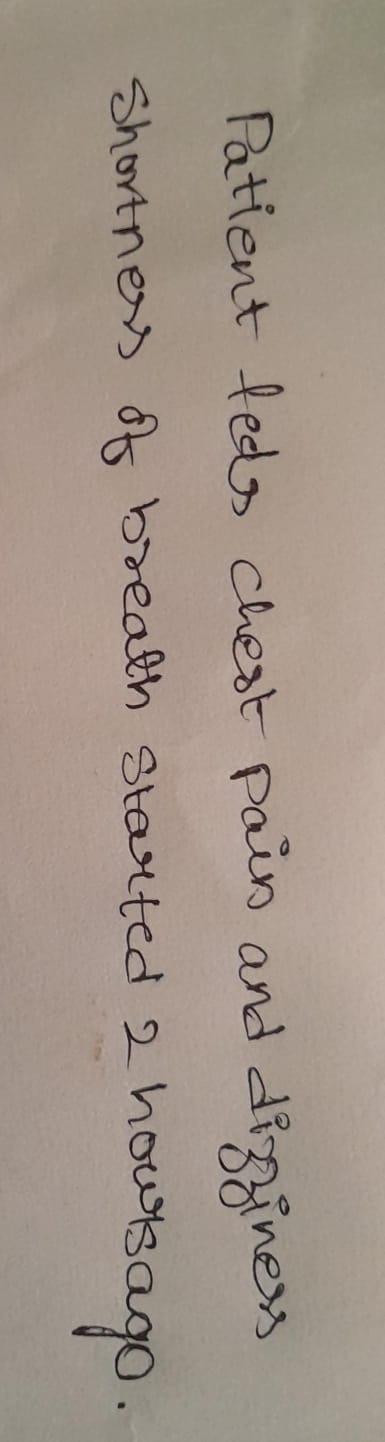 Patient feels chest pain and dizziness
Shortness of breath started 2 hours ago.